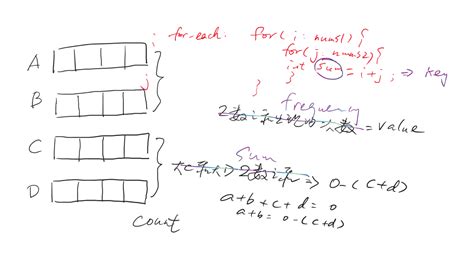 i for-each: for(i: nums1){
for(j: nums2){
int sum = i+j; => key
}
}
A
j
B
frequency
2数之和出现的次数 = value
C
sum
2数之和 => 0-(c+d)
D
a+b+c+d=0
a+b=0-(c+d)
count